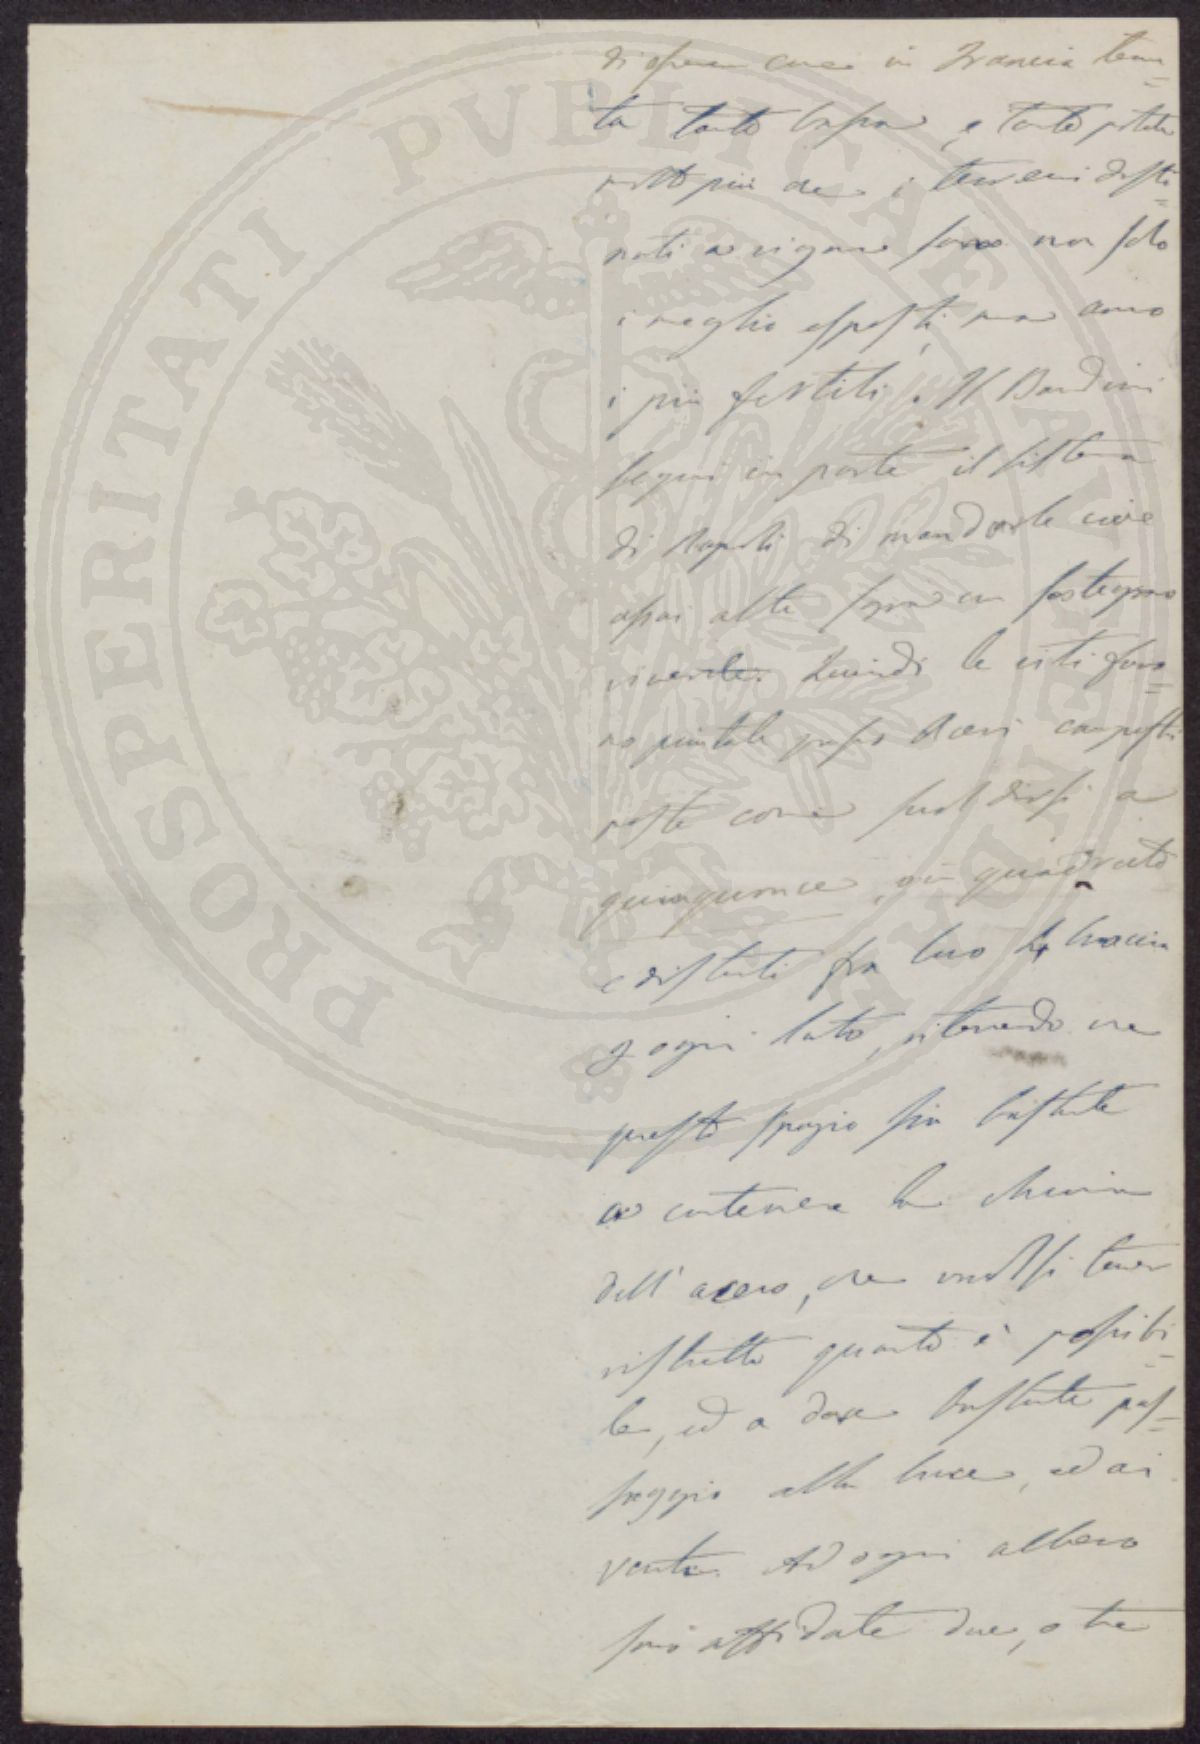 in Francia tenu=
ta tanto bassa, e tanto potata
molto più che i terreni desti=
nati a vigne sono non solo
i meglio esposti, ma anco
i più fertili. Il Bandini
seguì in parte il sistema
di Napoli di mandarle cioè
assai alte sopra un sostegno
vivente. Quindi le viti furo=
no piantate presso Aceri campestri
poste come suol dirsi a
quinquonce, o in quadrato
e distanti fra loro braccia
ogni lato, ritenendo che
questo spazio sia bastante
a contenere la chioma
dell'acero, che vuolsi tener
ristretto quanto è possibi=
le, ed a dare bastante pas=
saggio alla luce, ed ai
venti. Ad ogni albero
sono affidate due, o tre
PROSPERITATI PVBLICAE AVGENDAE